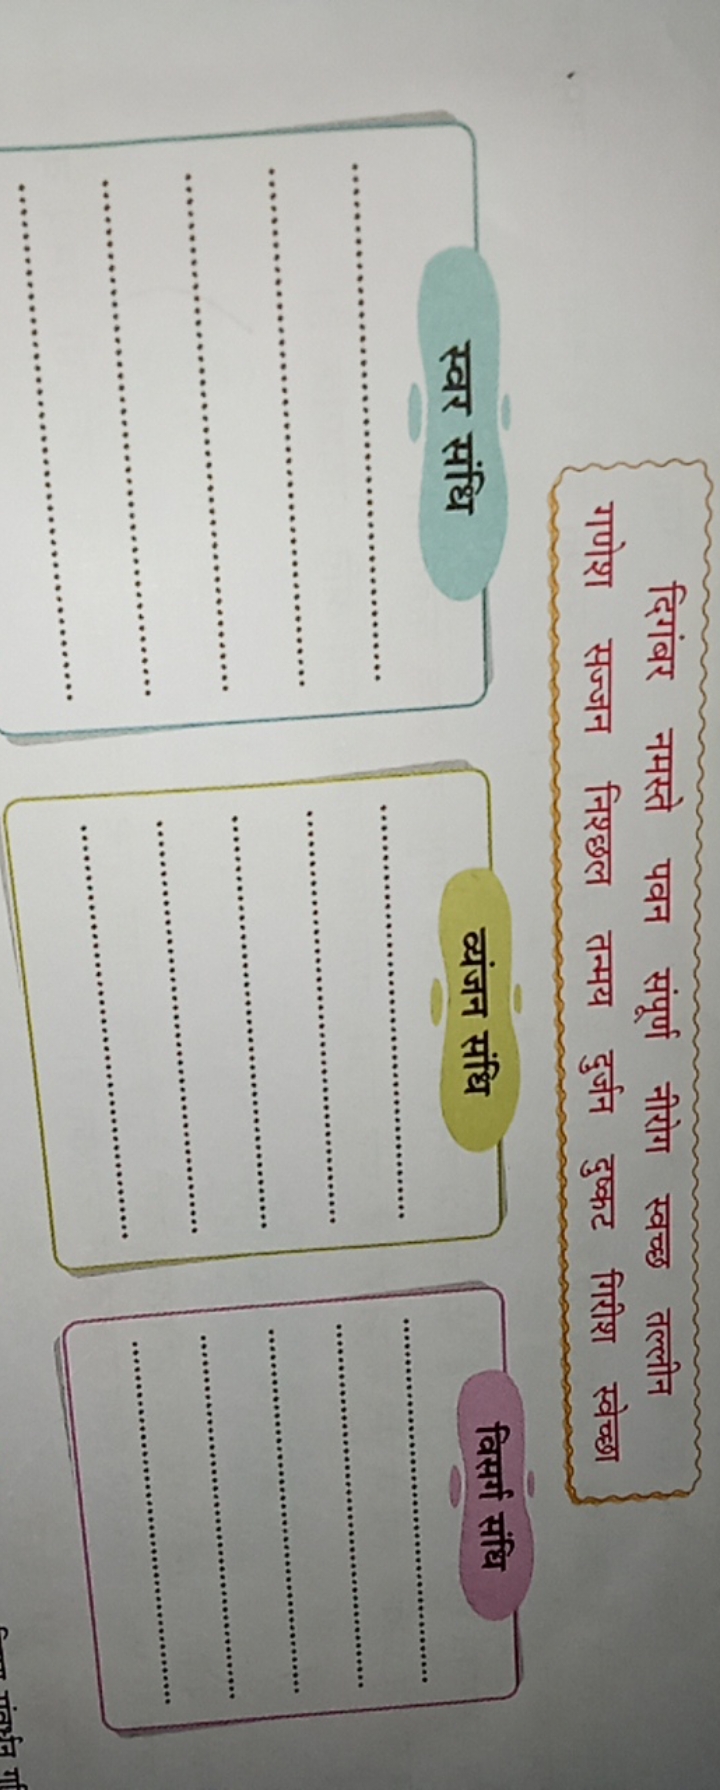 दिगंबर नमस्ते पवन संपूर्ण नीरोग स्वच्छ तल्लीन
गणेश सज्जन निश्छल तन्मय दुर्जन दुष्कट गिरीश स्वेच्छा
स्वर संधि
व्यंजन संधि
विसर्ग संधि